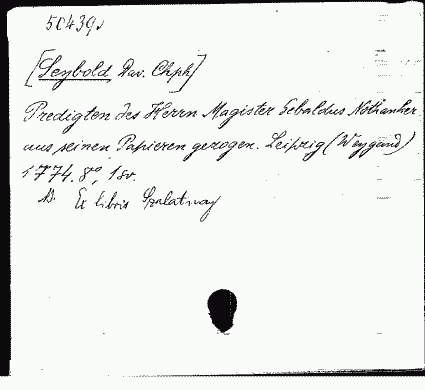 50439.
[Seybold, Dav. Chph]
Predigten des Herrn Magister Sebaldus Nothanker
aus seinen Papieren gezogen. Leipzig (Weygand)
1774. 8°, 1 sv.
Ex libris Szalatnay